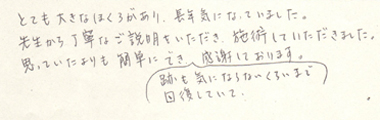 とても大きなほくろがあり、長年気になっていました。
先生から丁寧なご説明をいただき、施術していただきました。
思っていたよりも簡単にでき 感謝しております。
跡も気にならないくらいまで
回復していて、